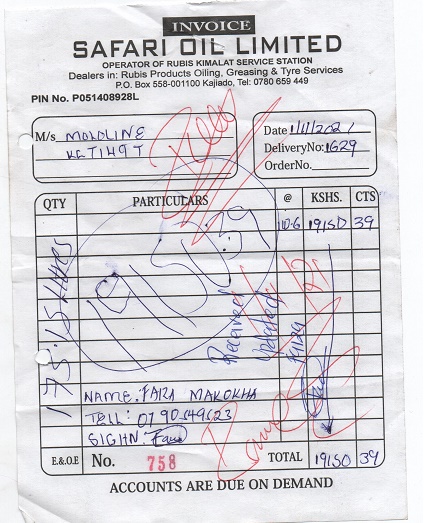 INVOICE
SAFARI OIL LIMITED
OPERATOR OF RUBIS KIMALAT SERVICE STATION
Dealers in: Rubis Products Oiling, Greasing & Tyre Services
P.O. Box 558-001100 Kajiado, Tel: 0780 659 449
PIN No. P051408928L
M/s MOKOLINE
Date 1/11/2021
Delivery No: 1629
Order No.
QTY PARTICULARS @ KSHS. CTS
110-6 19150 39
19150.39
175.15 Litres
Received
Updated
NAME: FAIZA MAKOKHA
TELL:
SIGHN:
E.&O.E No. 758 TOTAL 19150 39
ACCOUNTS ARE DUE ON DEMAND